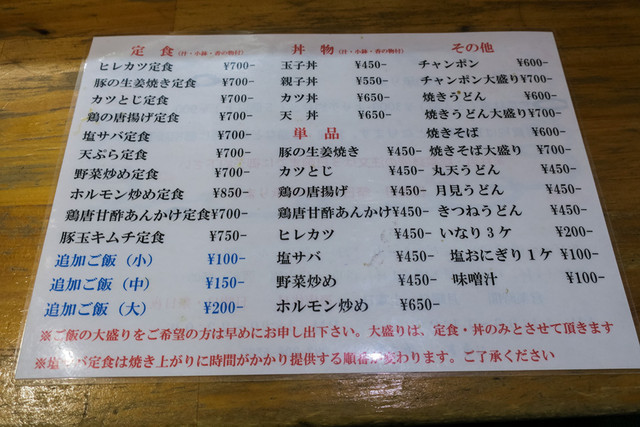 定 食 (汁・小鉢・香の物付)
ヒレカツ定食 ¥700-
豚の生姜焼き定食 ¥700-
カツとじ定食 ¥700-
鶏の唐揚げ定食 ¥700-
塩サバ定食 ¥700-
天ぷら定食 ¥700-
野菜炒め定食 ¥700-
ホルモン炒め定食 ¥850-
鶏唐甘酢あんかけ定食¥700-
豚玉キムチ定食 ¥750-
追加ご飯（小） ¥100-
追加ご飯（中） ¥150-
追加ご飯（大） ¥200-
丼 物 (汁・小鉢・香の物付)
玉子丼 ¥450-
親子丼 ¥550-
カツ丼 ¥650-
天 丼 ¥650-
単 品
豚の生姜焼き ¥450-
カツとじ ¥450-
鶏の唐揚げ ¥450-
鶏唐甘酢あんかけ¥450-
ヒレカツ ¥450-
塩サバ ¥450-
野菜炒め ¥450-
ホルモン炒め ¥650-
その他
チャンポン ¥600-
チャンポン大盛り¥700-
焼きうどん ¥600-
焼きうどん大盛り¥700-
焼きそば ¥600-
焼きそば大盛り ¥700-
丸天うどん ¥450-
月見うどん ¥450-
きつねうどん ¥450-
いなり３ケ ¥200-
塩おにぎり１ケ ¥100-
味噌汁 ¥100-
※ご飯の大盛りをご希望の方は早めにお申し出下さい。大盛りは、定食・丼のみとさせて頂きます
※塩サバ定食は焼き上がりに時間がかかり提供する順番が変わります。ご了承ください